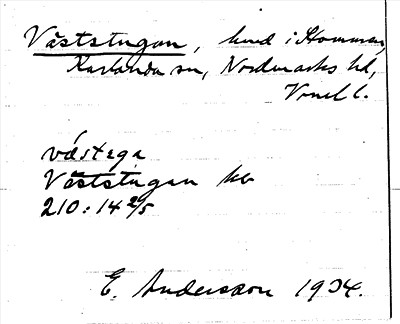 Väststugan, hmd i Hommar,
Karlanda sn, Nordmarks hd,
Vrml l.
västega
Väststugan hb
210:14 2/5
E. Andersson 1934.